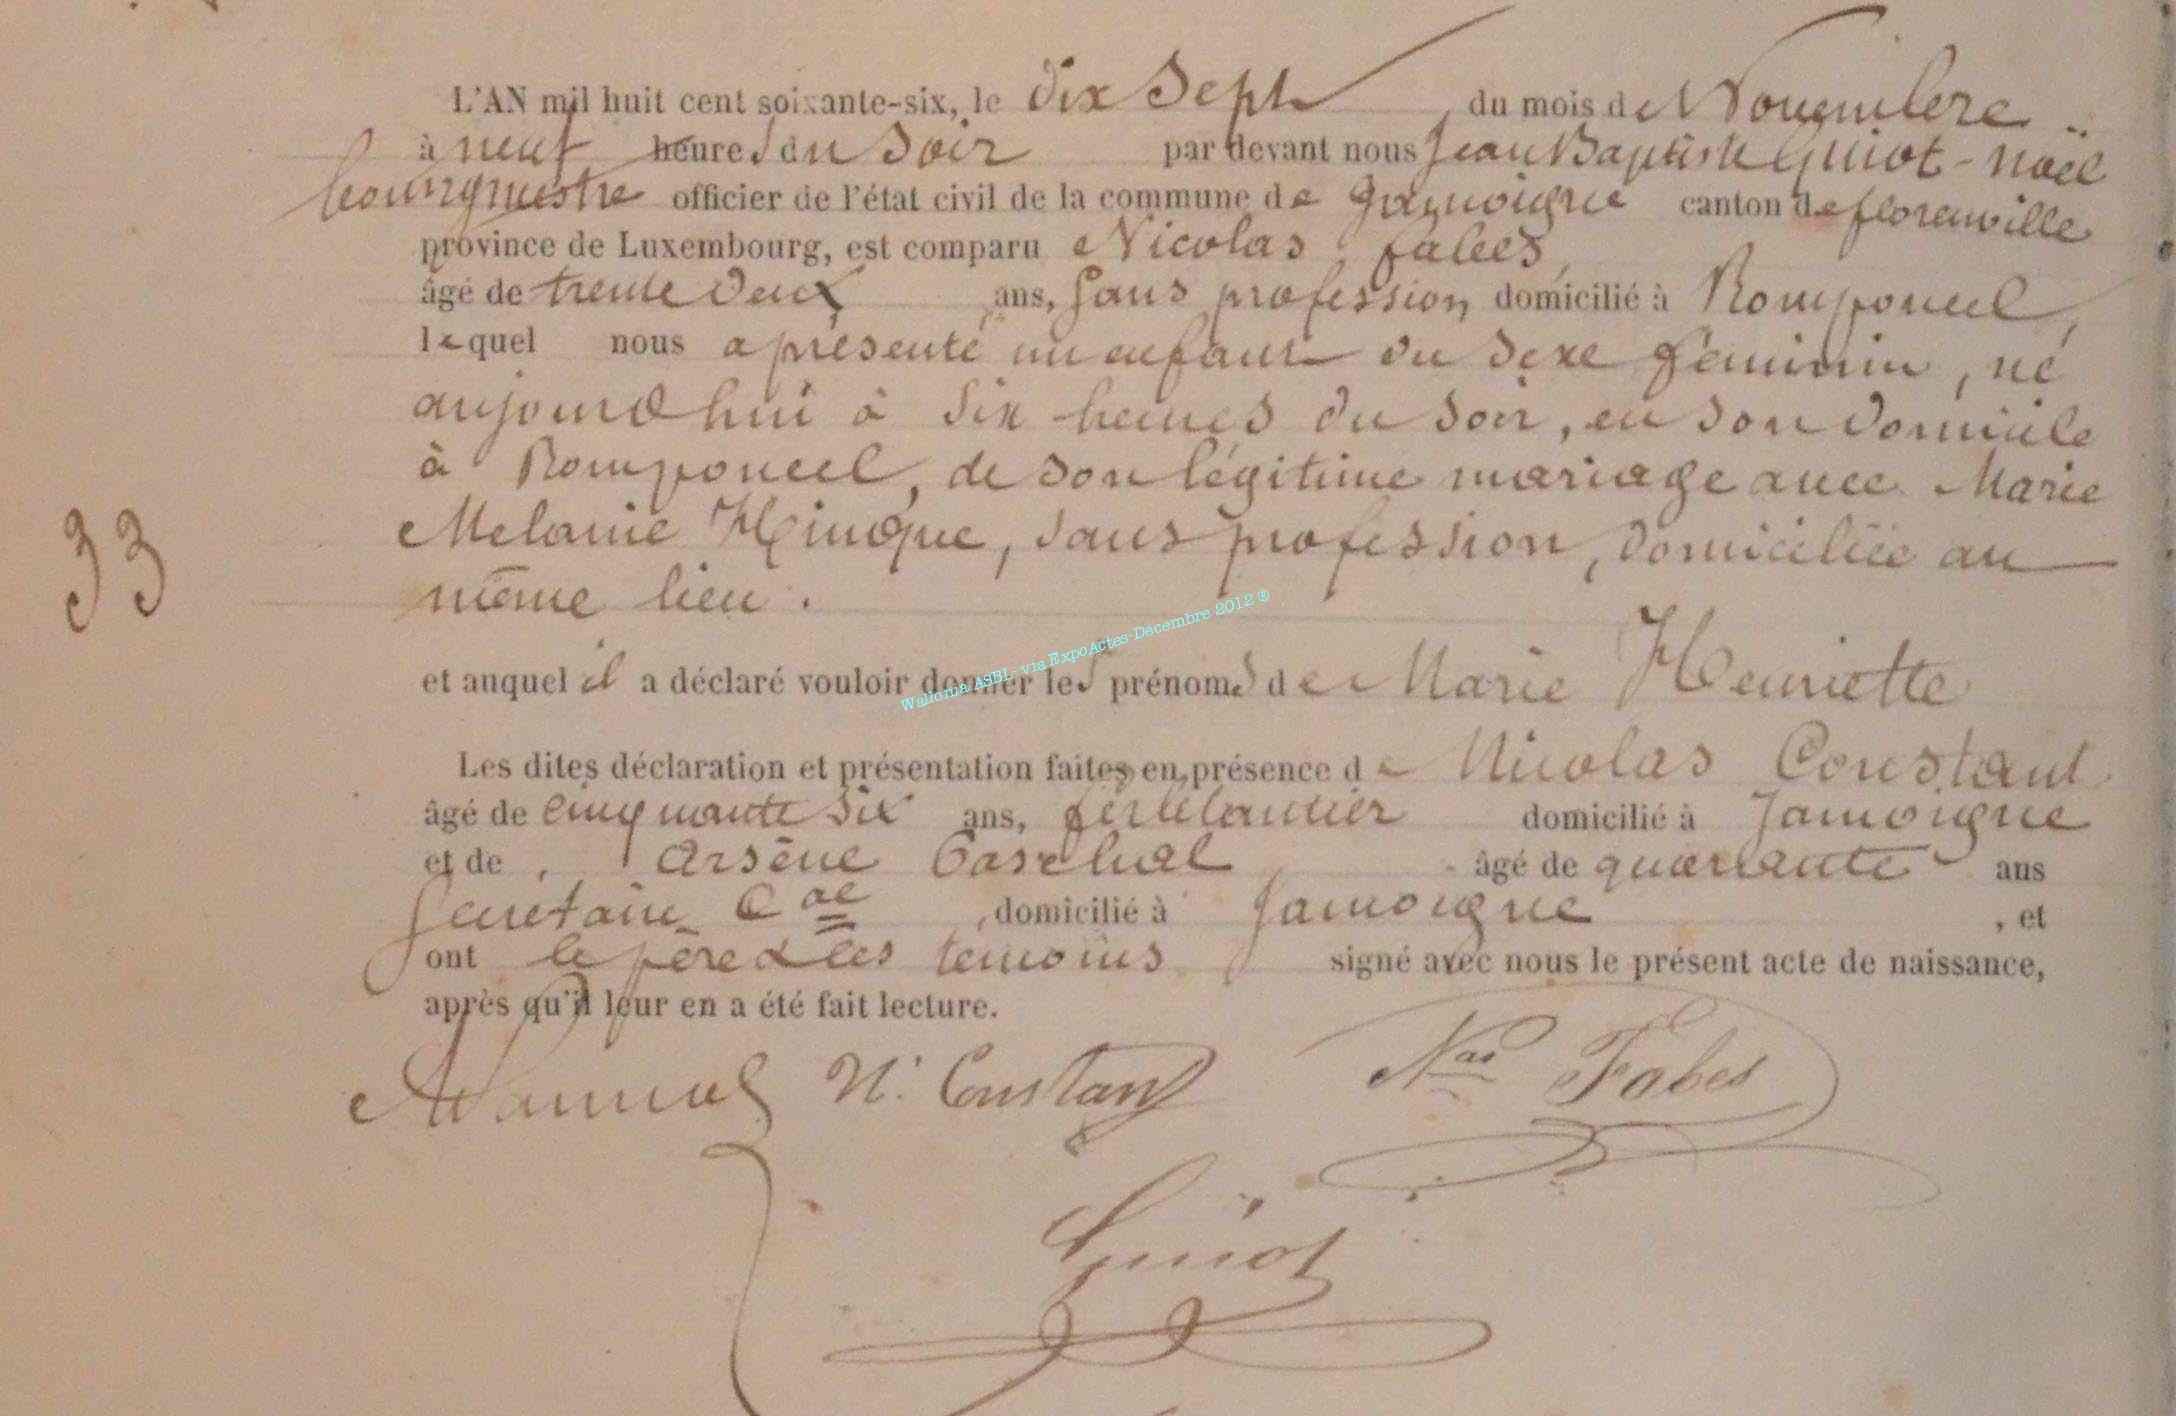 L'AN mil huit cent soixante-six, le dix Sept du mois de Novembre
à neuf heures du Soir par devant nous Jean Baptiste Guiot-Noël
bourgmestre officier de l'état civil de la commune de Jamoigne canton de florenville
province de Luxembourg, est comparu Nicolas fabes,
âgé de trente deux ans, Sans profession domicilié à Romponcel,
lequel nous a présenté un enfant du Sexe féminin, né
aujourd'hui à Six heures du Soir, en son domicile
à Romponcel, de son légitime mariage avec Marie
33
Melanie Hinque, sans profession, domiciliée au
même lieu.
Wallonia ASBL- via ExpoActes-Decembre 2012 ®
et auquel il a déclaré vouloir donner les prénoms de Marie Henriette
Les dites déclaration et présentation faites en présence de Nicolas Constant
âgé de cinquante six ans, ferblantier domicilié à Jamoigne
et de Arsène âgé de quarante ans
Secretaire Cal domicilié à Jamoigne, et
ont le père & les temoins signé avec nous le présent acte de naissance,
après qu'il leur en a été fait lecture.
N. Constant Nas Fabes
Guiot